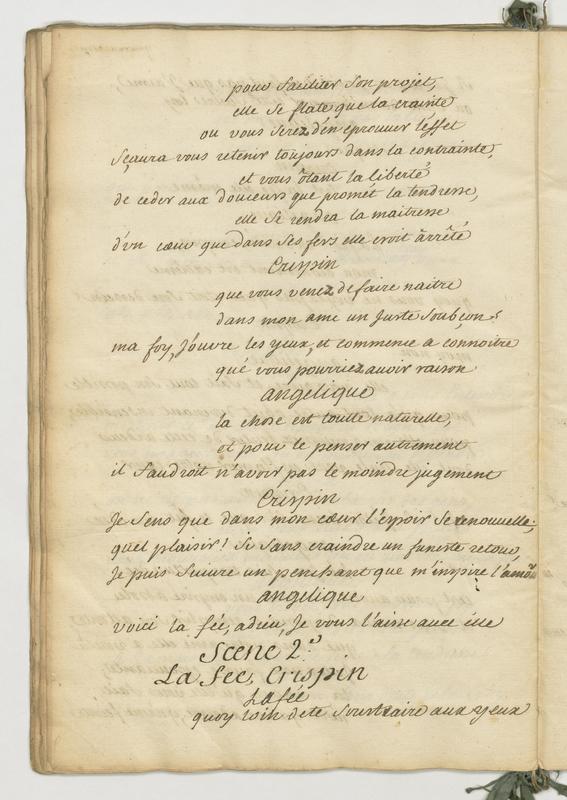 pour faciliter son projet,
elle se flate que la crainte
ou vous serez d'en eprouver l'effet
sçaura vous retenir toujours dans la contrainte,
et vous ôtant la liberté
de ceder aux douceurs que promét la tendresse,
elle se rendra la maitresse
d'vn cœur que dans ses fers elle croit àrrêté
Crispin
que vous venez de faire naitre
dans mon ame un juste soubçon
ma foy, j'ouvre les yeux, et commence à connoitre
que vous pourriez avoir raison
angelique
la chose est toutte naturelle,
et pour le penser autrement
il faudroit n'avoir pas le moindre jugement
Crispin
Je sens que dans mon cœur l'espoir se renouvelle,
quel plaisir! si sans craindre un funeste retour,
Je puis suivre un penchant que m'inspire l'amour
angelique
voici la fée, adieu, Je vous laisse avec elle
Scene 2.e
La fée, Crispin
La fée
quoy loin de te soustraire aux yeux